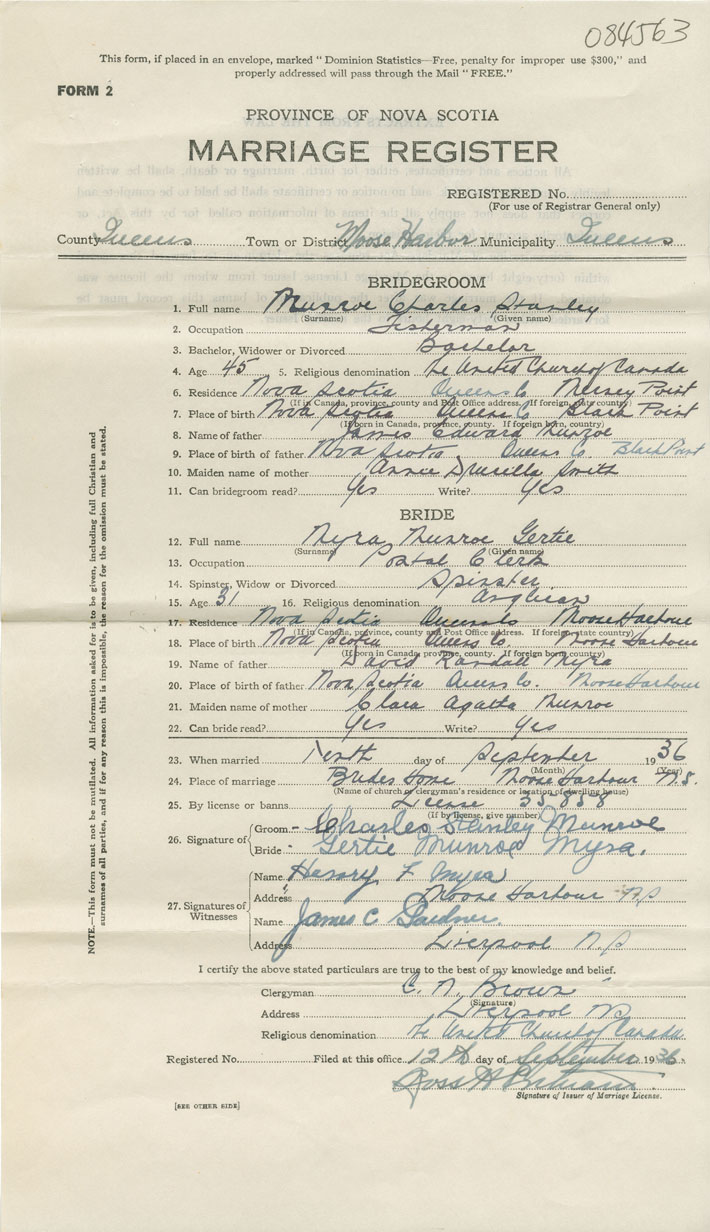 084563
This form, if placed in an envelope, marked "Dominion Statistics—Free, penalty for improper use $300," and
properly addressed will pass through the Mail "FREE."
FORM 2
PROVINCE OF NOVA SCOTIA
MARRIAGE REGISTER
REGISTERED No.
(For use of Registrar General only)
County Queens Town or District Moose Harbor Municipality Queens
BRIDEGROOM
1. Full name Munroe Charles Stanley
(Surname) (Given name)
2. Occupation Fisherman
3. Bachelor, Widower or Divorced Bachelor
4. Age 45 5. Religious denomination The United Church of Canada
6. Residence Nova Scotia Queens Co Mersey Point
(If in Canada, province, county and Post Office address. If foreign, state country)
7. Place of birth Nova Scotia Queens Co. Black Point
(If born in Canada, province, county. If foreign born, country)
8. Name of father James Edward Munroe
9. Place of birth of father Nova Scotia Queens Co. Black Point
10. Maiden name of mother Annie Drusilla Smith
11. Can bridegroom read? Yes Write? Yes
BRIDE
12. Full name Myra Munroe Gertie
(Surname) (Given name)
13. Occupation Postal Clerk
14. Spinster, Widow or Divorced Spinster
15. Age 31 16. Religious denomination Anglican
17. Residence Nova Scotia Queens Co Moose Harbour
(If in Canada, province, county and Post Office address. If foreign, state country)
18. Place of birth Nova Scotia Queens Co. Moose Harbour
(If born in Canada, province, county. If foreign born, country)
19. Name of father David Randall Myra
20. Place of birth of father Nova Scotia Queens Co. Moose Harbour
21. Maiden name of mother Clara Agatha Munroe
22. Can bride read? Yes Write? Yes
23. When married Tenth day of September 1936
(Month) (Year)
24. Place of marriage Brides Home Moose Harbour N.S.
(Name of church or clergyman's residence or location of dwelling house)
25. By license or banns License 35,858
(If by license, give number)
26. Signature of Groom Charles Stanley Munroe
Bride Gertie Munroe Myra.
27. Signatures of Witnesses
Name Henry F Myra
Address Moose Harbour N S
Name James C Gardner.
Address Liverpool N S
I certify the above stated particulars are true to the best of my knowledge and belief.
Clergyman C. N. Brown
(Signature)
Address Liverpool NS
Religious denomination The United Church of Canada
Registered No. Filed at this office 12th day of September 1936.
Ross H
Signature of Issuer of Marriage License.
[SEE OTHER SIDE]
NOTE.—This form must not be mutilated. All information asked for is to be given, including full Christian and
surnames of all parties, and if for any reason this is impossible, the reason for the omission must be stated.